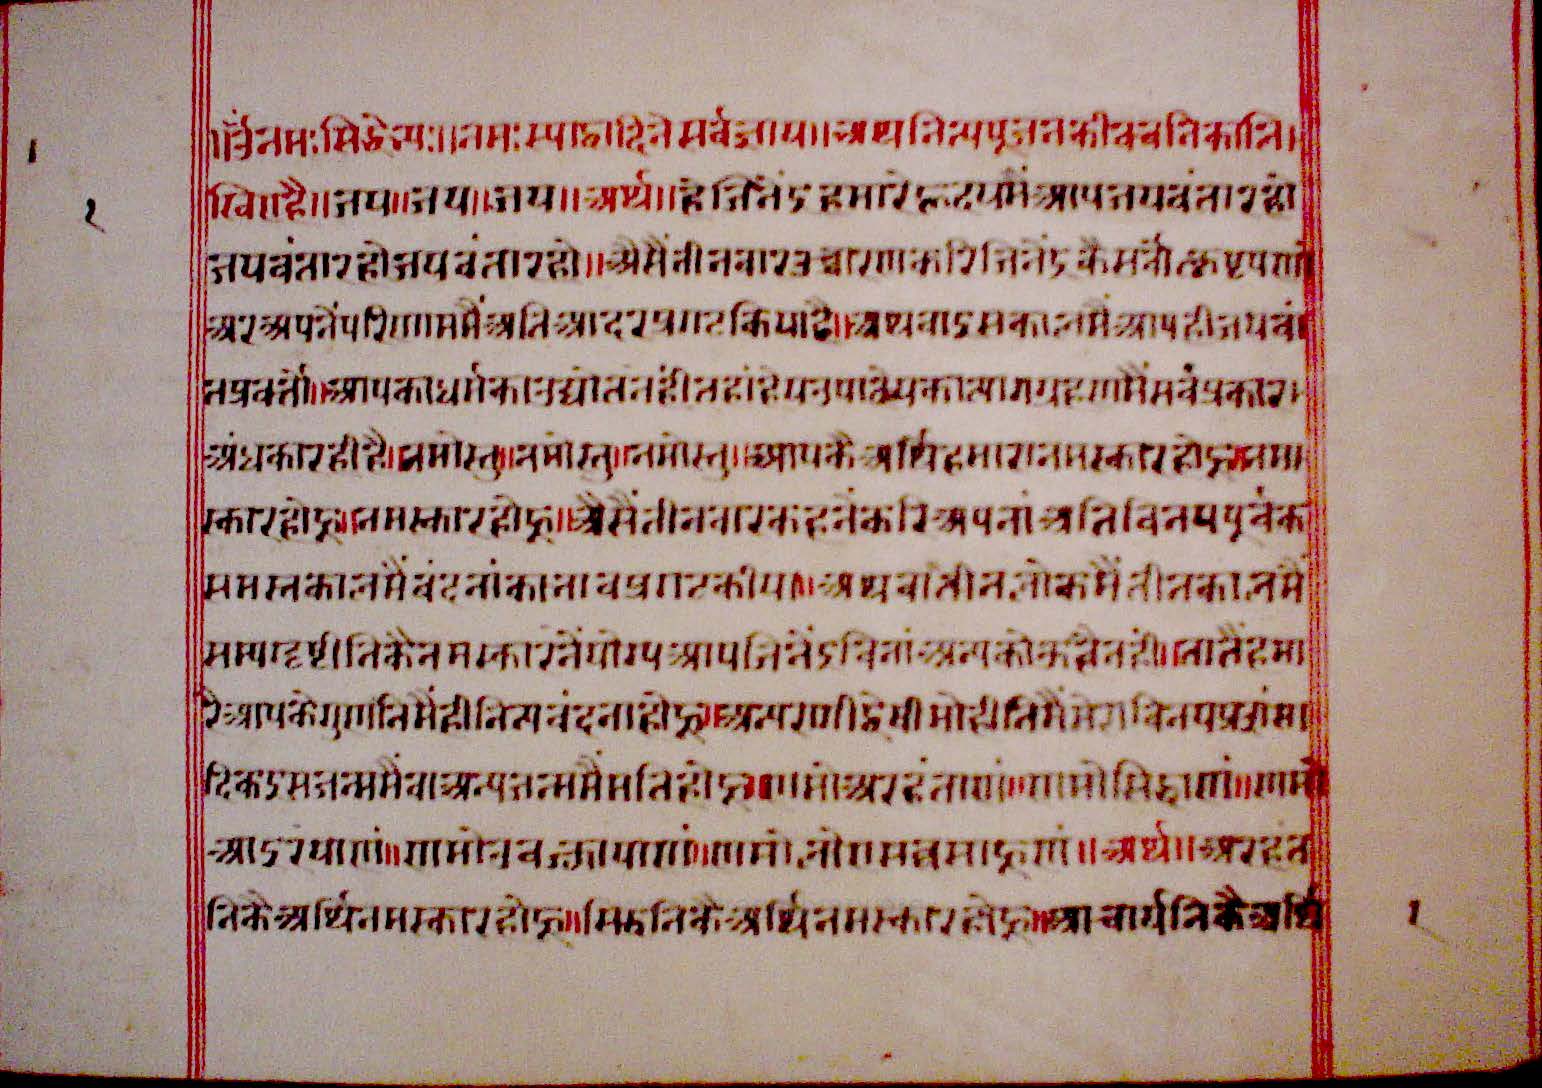 ॥ॐनमःसिद्धेभ्यः॥नमःस्याद्वादिनेसर्वज्ञाय॥अथनित्यपूजनकीवचनिकालि।
१
खिएहै॥जय॥जय॥जय॥अर्थ॥हेजिनेंऽहमारेहृदयमैंआपजयवंतारहो
२
जयवंतारहोजयवंतारहो॥अैसैंतीनवारउच्चारणकरिजिनेंऽकैसर्वोत्कृष्टपणों
अरअपनेंपरिणाममैंअतिआदरप्रगटकियाहै॥अथवाऽसकालमैंआपहीजयवं
तप्रवर्तो॥आपकाधर्मकाउद्योतनहींतहांहेयउपादेयकात्यागग्रहणमैंसर्वप्रकार।
अंधकारहीहै॥नमोस्तु॥नमोस्तु॥नमोस्तु॥आपकैअर्थिहमारानमस्कारहोहू॥नमा
स्कारहोहू॥नमस्कारहोहू॥अैसैंतीनवारकहनेंकरिअपनांअतिविनयपूर्वक
समस्तकालमैंवंदनांकाभावप्रगटकीया॥अथवांतीनलोकमैंतीनकालमैं
सम्यग्दृष्टीनिकैनमस्कारनेंयोग्यआपजिनेंऽविनांअन्यकोऊहैनहीं॥तातैंहमा
रैआपकेगुणनिमैंहीनित्यवंदनाहोहू॥अन्यरागीद्वेषीमोहीनिमैंमेराविनयप्रशंसा
दिकऽसजन्ममैंवाअन्यजन्ममैंमतिहोहू॥णमोअरहंताणं॥णमोसिद्धाणं॥णमो
आऽरयाणं॥णमोउवज्झायाणं॥णमोलोएसव्वसाहूणं॥अर्थ॥अरहंत
निकैअर्थिनमस्कारहोहू॥सिद्धनिकैअर्थिनमस्कारहोहू॥आचार्यनिकैअर्थि
१